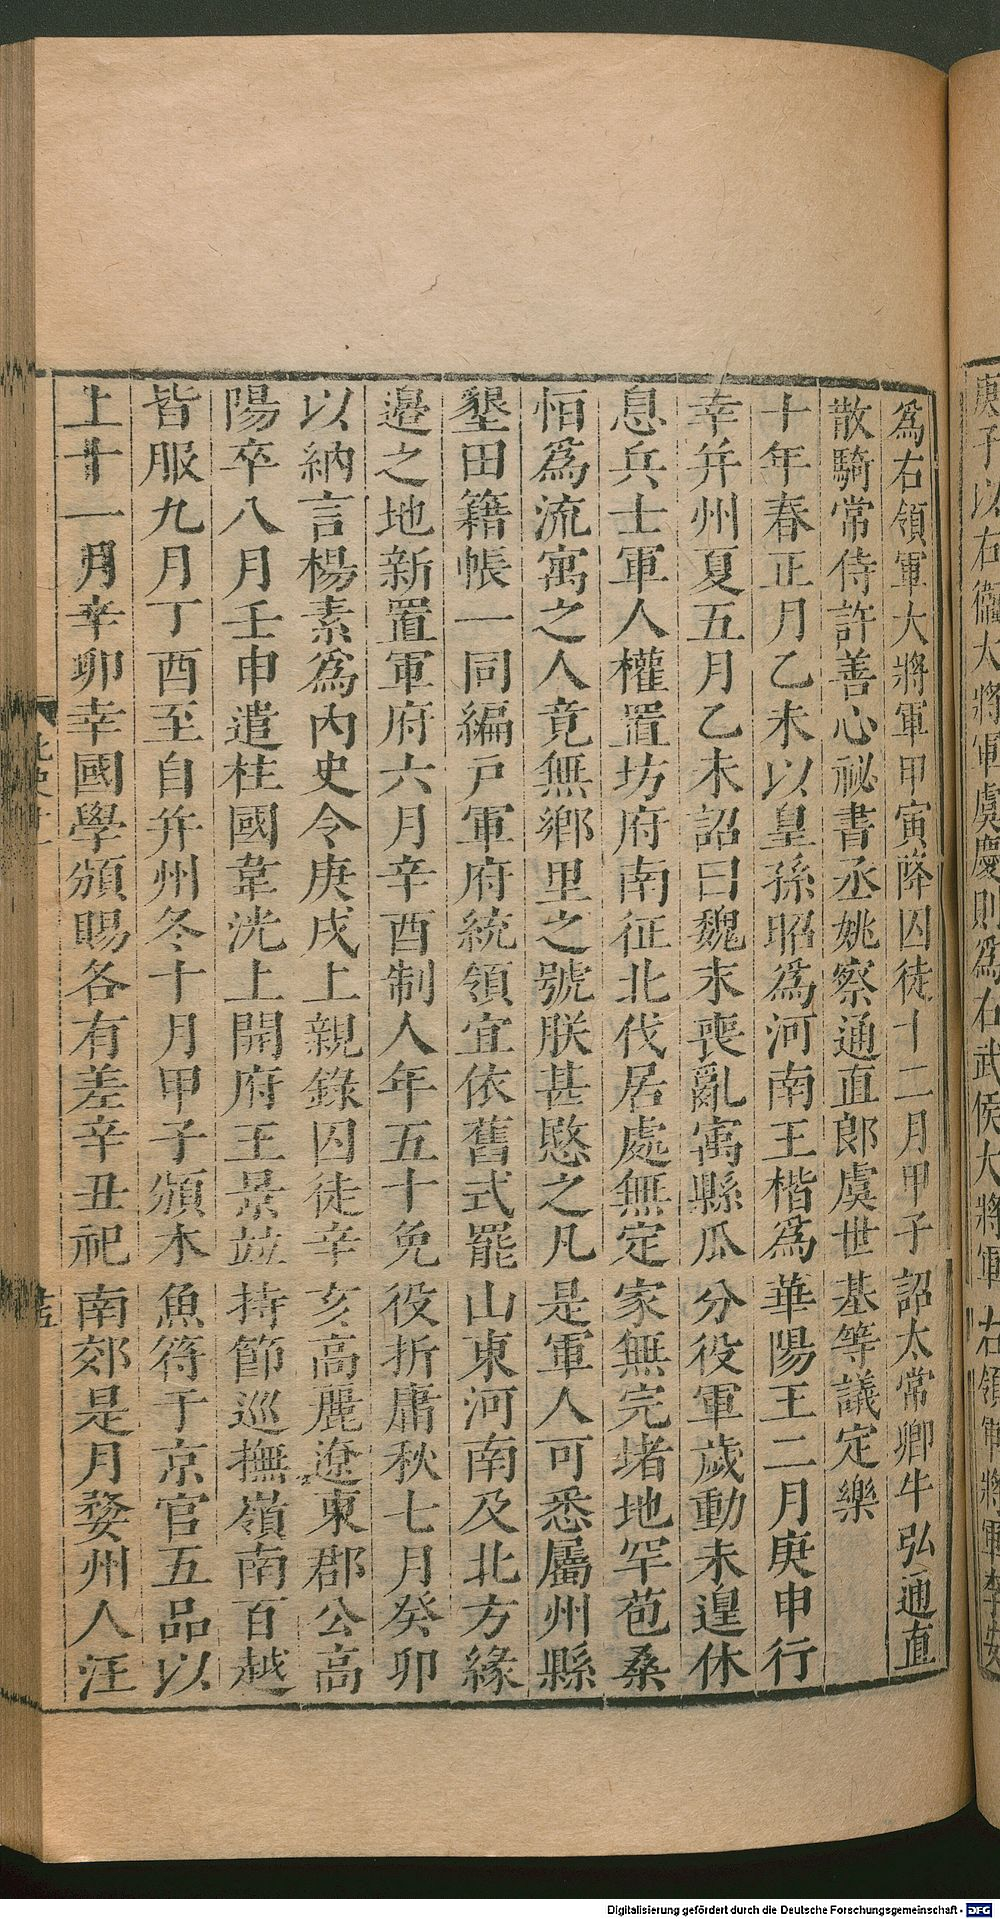 庚子以右衛大將軍虞慶則爲右武侯大將軍右領軍將軍李安
爲右領軍大將軍甲寅降囚徒十二月甲子詔太常卿牛弘通直
散騎常侍許善心祕書丞姚察通直郎虞世基等議定樂
十年春正月乙未以皇孫昭爲河南王楷爲華陽王二月庚申行
幸并州夏五月乙未詔曰魏末喪亂寓縣瓜分役軍歲動未遑休
息兵士軍人權置坊府南征北伐居處無定家無完堵地罕苞桑
恒爲流寓之人竟無鄉里之號朕甚愍之凡是軍人可悉屬州縣
墾田籍帳一同編戸軍府統領宜依舊式罷山東河南及北方緣
邉之地新置軍府六月辛酉制人年五十免役折庸秋七月癸卯
以納言楊素爲內史令庚戌上親錄囚徒辛亥高麗遼東郡公高
陽卒八月壬申遣柱國韋洸上開府王景竝持節巡撫嶺南百越
皆服九月丁酉至自并州冬十月甲子頒木魚符于京官五品以
上十一月辛卯幸國學頒賜各有差辛丑祀南郊是月婺州人汪
Digitalisierung gefördert durch die Deutsche Forschungsgemeinschaft - DFG